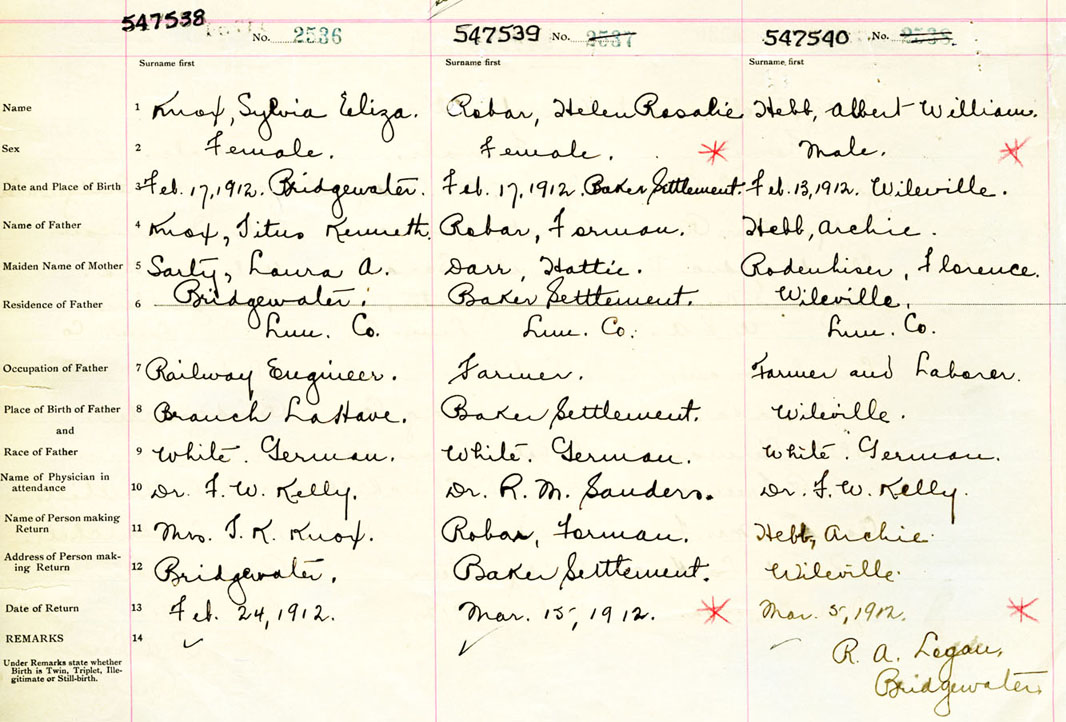 547538 No. 2536 547539 No. 2537 547540 No. 2538
Surname first Surname first Surname first
Name 1 Knox, Sylvia Eliza. Robar, Helen Rosalie Hebb, Albert William.
Sex 2 Female. Female. Male.
Date and Place of Birth 3 Feb. 17, 1912. Bridgewater. Feb. 17, 1912. Baker Settlement. Feb. 13, 1912. Wileville.
Name of Father 4 Knox, Titus Kenneth. Robar, Forman. Hebb, Archie.
Maiden Name of Mother 5 Sarty, Laura A. Darr, Hattie. Rodenhiser, Florence.
Residence of Father 6 Bridgewater. Baker Settlement. Wileville.
Lun. Co. Lun. Co. Lun. Co.
Occupation of Father 7 Railway Engineer. Farmer. Farmer and Laborer.
Place of Birth of Father 8 Branch LaHave. Baker Settlement. Wileville.
and
Race of Father 9 White. German. White. German. White. German.
Name of Physician in
attendance 10 Dr. F. W. Kelly. Dr. R. M. Sanders. Dr. F. W. Kelly.
Name of Person making
Return 11 Mrs. T. K. Knox. Robar, Forman. Hebb, Archie.
Address of Person mak-
ing Return 12 Bridgewater. Baker Settlement. Wileville.
Date of Return 13 Feb. 24, 1912. Mar. 15, 1912. Mar. 5, 1912.
REMARKS 14
Under Remarks state whether
Birth is Twin, Triplet, Ille-
gitimate or Still-birth.
R. A. Logan,
Bridgewater.